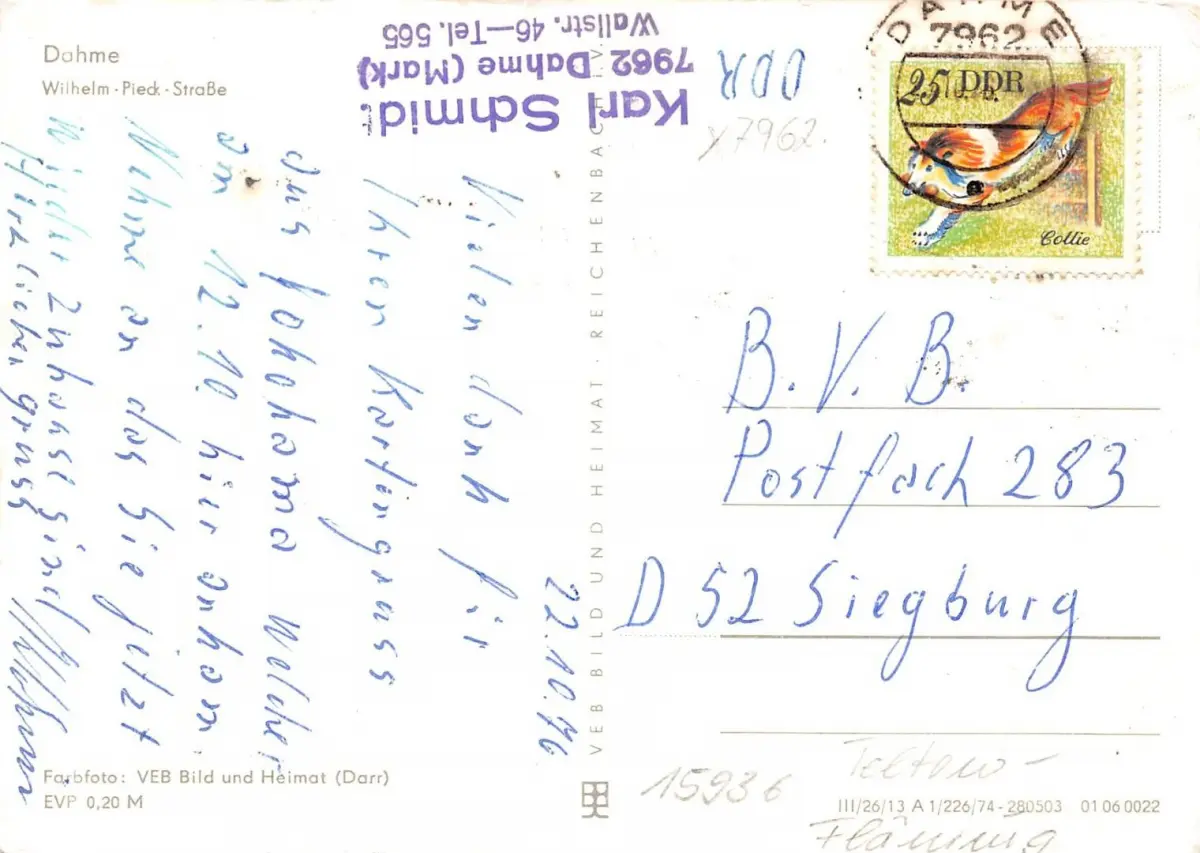 Dahme
Wilhelm-Pieck-Straße
Karl Schmidt
7962 Dahme (Mark)
Wallstr. 46—Tel. 565
DDR
X7962.
DAHME
7962
25 DDR
Collie
22.10.76
Vielen dank für
Ihren Kartengruss
aus Yohohama welcher
am 12.10 hier anham
Nehme an das Sie jetzt
wieder zuhause sind
Herzlichen gruss
B. V. B.
Postfach 283
D 52 Siegburg
VEB BILD UND HEIMAT · REICHENBACH I. V.
Farbfoto: VEB Bild und Heimat (Darr)
EVP 0,20 M
15936
Teltow-
Fläming
III/26/13 A 1/226/74-280503 01 06 0022